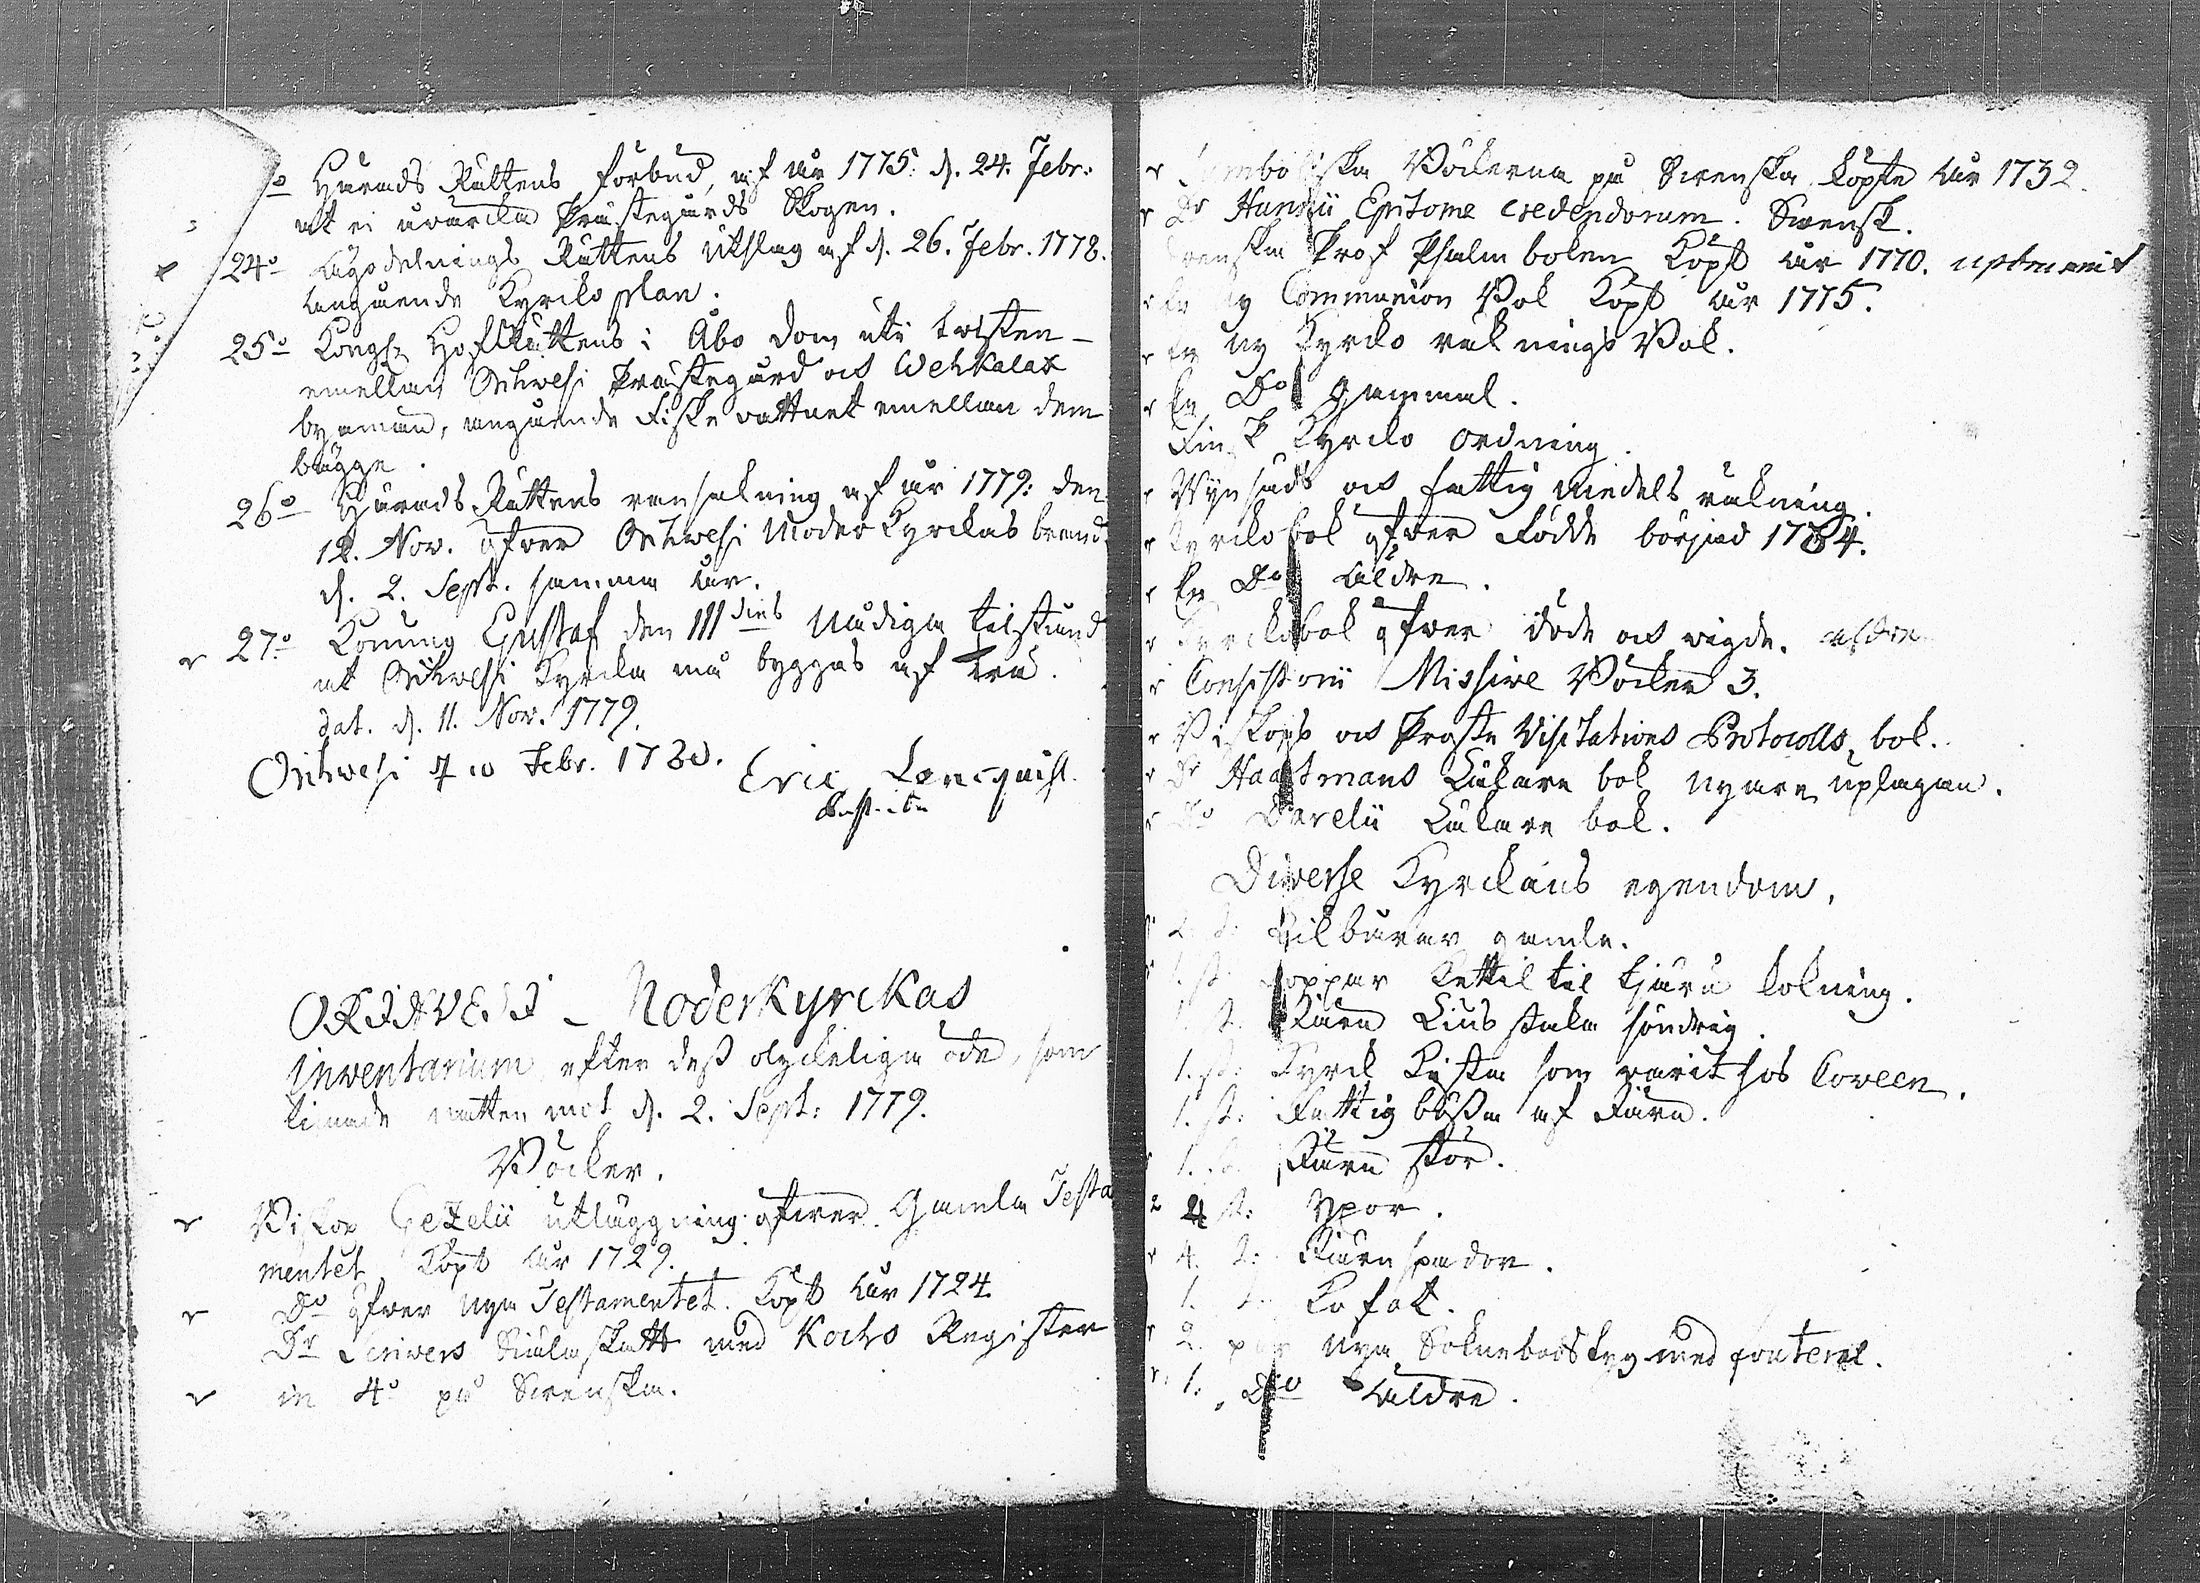 Härads Rättens förbud, af år 1775. d. 24. Febr:
at ei åwärcka Prästegårds Skogen.
24o Ägodelnings Rättens Utslag af d. 26. Febr. 1778.
angående Kyrko plan.
25o Kongl. HofRättens i Åbo dom uti twisten
emellan Orihwesi Prästegård och Wehkalax
byamän, angående Fiske vattnet emellan dem
bägge.
26o Härads Rättens ransakning af år 1779: den
12. Nov. öfwer Orihwesi Moder Kyrckas brand
d. 2. Sept. samma år.
27o Konung Gustaf den III dies Nådiga tilstånd
at Orihwesi Kyrcka må byggas af trä.
dat. d. 11. Nov. 1779.
Orihwesi d 10 Febr. 1780. Eric Lencquist.
ORIHVESI - Moderkyrckas
Inventarium efter dess olyckeliga öde, som
timade natten mot d. 2. Sept: 1779.
Böcker.
Biskop Gezelii utläggning öfwer Gamla Testa
mentet Köpt år 1729.
Do öfwer Nya Testamentet. Köpt år 1724.
Dr Scrivers Siälaskatt med Kochs Register
in 4o på Swenska.
Symboliska Böckerna på Swenska köpte år 1732.
Dr Hunnii Epitome credendorum. Swensk.
Swenska Prof Psalmboken Köpt år 1770.
En ny Communion Bok Köpt år 1775.
En ny Kyrko räknings Bok.
En Do gammal.
Finsk Kyrko ordning.
Wynsäds och fattig medels räkning.
Kyrkobok öfwer Födde börjad 1764.
En Do äldre.
Kyrckobok öfwer döde och wigde. äldre
Consistorii Missive Böcker 3.
Biskops och Proste Visitations Protocolls bok.
Dr Haartmans Läkare bok nyare uplagan.
Do Darelii Läkare bok.
Diverse Kyrckans egendom.
2. st. Likbårar gamla.
1. st. Koppar Kettil til tjäru kokning.
1 st. Järn Liusstake söndrig.
1. st. Kyrck Kista som varit hos Coveen.
1. st: Fattigbössa af Järn.
1. st. Järn stör.
4 st: Spor.
4. st: Järnspador.
1. st. Kofot.
2. par nya Soknebods tyg med fouteral.
1. Do äldre.